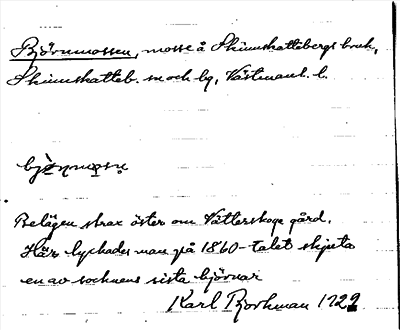 Björnmossen, mosse å Skinnskattebergs bruk,
Skinnskatteb. sn och bg, Västmanl. l.
Belägen strax öster om Vätterskoge gård.
Här lyckades man på 1860-talet skjuta
en av socknens sista björnar
Karl